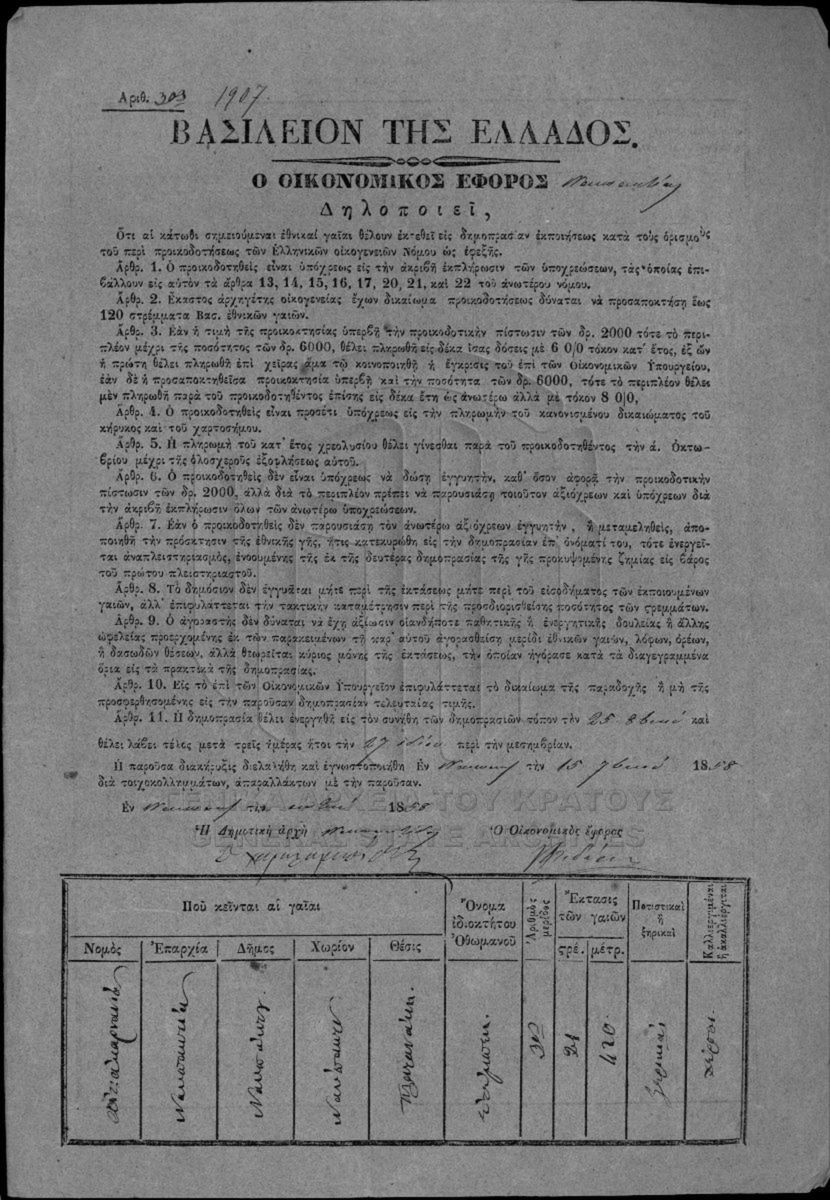 Αριθ. 303 1907.
ΒΑΣΙΛΕΙΟΝ ΤΗΣ ΕΛΛΑΔΟΣ.
Ο ΟΙΚΟΝΟΜΙΚΟΣ ΕΦΟΡΟΣ Ναυπακτίας
Δηλοποιεῖ,
Ὅτι αἱ κάτωθι σημειούμεναι ἐθνικαὶ γαῖαι θέλουν ἐκτεθεῖ εἰς δημοπρασίαν ἐκποιήσεως κατὰ τοὺς ὁρισμοὺς
τοῦ περὶ προικοδοτήσεως τῶν Ἑλληνικῶν οἰκογενειῶν Νόμου ὡς ἐφεξῆς.
Ἄρθρ. 1. Ὁ προικοδοτηθεὶς εἶναι ὑπόχρεως εἰς τὴν ἀκριβῆ ἐκπλήρωσιν τῶν ὑποχρεώσεων, τὰς ὁποίας ἐπι-
βάλλουν εἰς αὐτὸν τὰ ἄρθρα 13, 14, 15, 16, 17, 20, 21, καὶ 22 τοῦ ἀνωτέρω νόμου.
Ἄρθρ. 2. Ἕκαστος ἀρχηγέτης οἰκογενείας ἔχων δικαίωμα προικοδοτήσεως δύναται νὰ προσαποκτήσῃ ἕως
120 στρέμματα Βασ. ἐθνικῶν γαιῶν.
Ἄρθρ. 3. Ἐὰν ἡ τιμὴ τῆς προικοκτησίας ὑπερβῇ τὴν προικοδοτικὴν πίστωσιν τῶν δρ. 2000 τότε τὸ περι-
πλέον μέχρι τῆς ποσότητος τῶν δρ. 6000, θέλει πληρωθῆ εἰς δέκα ἴσας δόσεις μὲ 6 0/0 τόκον κατ' ἔτος, ἐξ ὧν
ἡ πρώτη θέλει πληρωθῆ ἐπὶ χεῖρας ἅμα τῷ κοινοποιηθῇ ἡ ἔγκρισις τοῦ ἐπὶ τῶν Οἰκονομικῶν Ὑπουργείου,
ἐὰν δὲ ἡ προσαποκτηθεῖσα προικοκτησία ὑπερβῇ καὶ τὴν ποσότητα τῶν δρ. 6000, τότε τὸ περιπλέον θέλει
μὲν πληρωθῆ παρὰ τοῦ προικοδοτηθέντος ἐπίσης εἰς δέκα ἔτη ὡς ἀνωτέρω ἀλλὰ μὲ τόκον 8 0|0,
Ἄρθρ. 4. Ὁ προικοδοτηθεὶς εἶναι προσέτι ὑπόχρεως εἰς τὴν πληρωμὴν τοῦ κανονισμένου δικαιώματος τοῦ
κήρυκος καὶ τοῦ χαρτοσήμου.
Ἄρθρ. 5. Ἡ πληρωμὴ τοῦ κατ' ἔτος χρεολυσίου θέλει γίνεσθαι παρὰ τοῦ προικοδοτηθέντος τὴν ά. Ὀκτω-
βρίου μέχρι τῆς ὁλοσχεροῦς ἐξοφλήσεως αὐτοῦ.
Ἄρθρ. 6. Ὁ προικοδοτηθεὶς δὲν εἶναι ὑπόχρεως νὰ δώσῃ ἐγγυητὴν, καθ' ὅσον ἀφορᾷ τὴν προικοδοτικὴν
πίστωσιν τῶν δρ. 2000, ἀλλὰ διὰ τὸ περιπλέον πρέπει νὰ παρουσιάσῃ τοιοῦτον ἀξιόχρεων καὶ ὑπόχρεων διὰ
τὴν ἀκριβῆ ἐκπλήρωσιν ὅλων τῶν ἀνωτέρω ὑποχρεώσεων.
Ἄρθρ. 7. Ἐὰν ὁ προικοδοτηθεὶς δὲν παρουσιάσῃ τὸν ἀνωτέρω ἀξιόχρεων ἐγγυητὴν, ἢ μεταμεληθεὶς, ἀπο-
ποιηθῇ τὴν πρόσκτησιν τῆς ἐθνικῆς γῆς, ἥτις κατεκυρώθη εἰς τὴν δημοπρασίαν ἐπ' ὀνόματί του, τότε ἐνεργεῖ-
ται ἀναπλειστηριασμὸς, ἐνοουμένης τῆς ἐκ τῆς δευτέρας δημοπρασίας τῆς γῆς προκυψομένης ζημίας εἰς βάρος
τοῦ πρώτου πλειστηριαστοῦ.
Ἄρθρ. 8. Τὸ δημόσιον δὲν ἐγγυᾶται μήτε περὶ τῆς ἐκτάσεως μήτε περὶ τοῦ εἰσοδήματος τῶν ἐκποιουμένων
γαιῶν, ἀλλ' ἐπιφυλάττεται τὴν τακτικὴν καταμέτρησιν περὶ τῆς προσδιορισθείσης ποσότητος τῶν στρεμμάτων.
Ἄρθρ. 9. Ὁ ἀγοραστὴς δὲν δύναται νὰ ἔχῃ ἀξίωσιν οἱανδήποτε παθητικῆς ἢ ἐνεργητικῆς δουλείας ἢ ἄλλης
ὠφελείας προερχομένης ἐκ τῶν παρακειμένων τῇ παρ' αὐτοῦ ἀγορασθείσῃ μερίδι ἐθνικῶν γαιῶν, λόφων, ὀρέων,
ἢ δασωδῶν θέσεων, ἀλλὰ θεωρεῖται κύριος μόνης τῆς ἐκτάσεως, τὴν ὁποίαν ἠγόρασε κατὰ τὰ διαγεγραμμένα
ὅρια εἰς τὰ πρακτικὰ τῆς δημοπρασίας.
Ἄρθρ. 10. Εἰς τὸ ἐπὶ τῶν Οἰκονομικῶν Ὑπουργεῖον ἐπιφυλάττεται τὸ δικαίωμα τῆς παραδοχῆς ἢ μὴ τῆς
προσφερθησομένης εἰς τὴν παροῦσαν δημοπρασίαν τελευταίας τιμῆς.
Ἄρθρ. 11. Ἡ δημοπρασία θέλει ἐνεργηθῆ εἰς τὸν συνήθη τῶν δημοπρασιῶν τόπον τὴν 25 8βρίου καὶ
θέλει λάβει τέλος μετὰ τρεῖς ἡμέρας ἤτοι τὴν 27 ἰδίου περὶ τὴν μεσημβρίαν.
Ἡ παροῦσα διακήρυξις διελαλήθη καὶ ἐγνωστοποιήθη Ἐν Ναυπάκτῳ τὴν 15 7βρίου 1858
διὰ τοιχοκολλημμάτων, ἀπαραλλάκτων μὲ τὴν παροῦσαν.
Ἐν Ναυπάκτῳ τὴν 1858
ΓΕΝΙΚΑ ΑΡΧΕΙΑ ΤΟΥ ΚΡΑΤΟΥΣ
GENERAL STATE ARCHIVES
Ἡ Δημοτικὴ ἀρχὴ Ναυπάκτου Ὁ Οἰκονομικὸς ἔφορος
Ποῦ κεῖνται αἱ γαῖαι
Νομὸς Ἐπαρχία Δῆμος Χωρίον Θέσις
Ὄνομα ἰδιοκτήτου Ὀθωμανοῦ
Ἀριθμὸς μερίδος
Ἔκτασις τῶν γαιῶν
στρέ. μέτρ.
Ποτιστικαὶ ἢ ξηρικαὶ
Καλλιεργημέναι ἢ ἀκαλλιέργηται
Ἀιτ/ακαρνανία Ναυπακτίας Ναυπάκτου Ναύπακτος Πλατανάκη. 303 21 420. ξηρικαί χέρσοι.